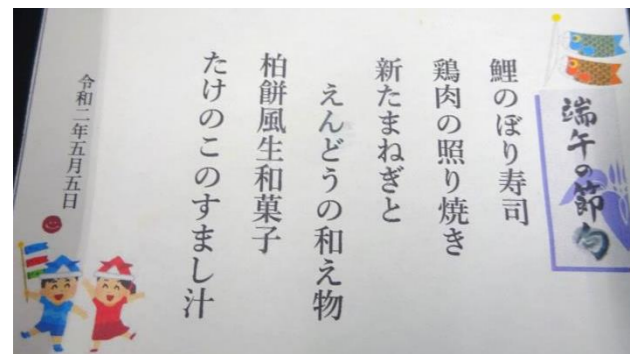 端午の節句
鯉のぼり寿司
鶏肉の照り焼き
新たまねぎと
えんどうの和え物
柏餅風生和菓子
たけのこのすまし汁
令和二年五月五日